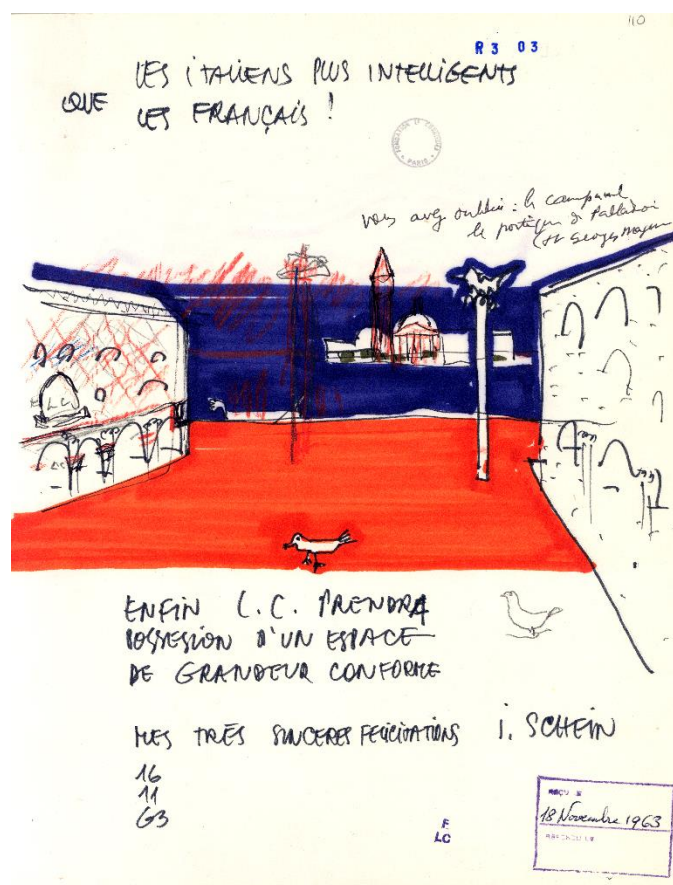 110
R3 03
LES ITALIENS PLUS INTELLIGENTS
QUE LES FRANÇAIS !
FONDATION LE CORBUSIER
PARIS
vous avez oublié : le campanil
le portique de Palladio
(St Georges Majeur
L C
ENFIN L.C. PRENDRA
POSSESSION D'UN ESPACE
DE GRANDEUR CONFORME
MES TRÈS SINCERES FELICITATIONS I. SCHEIN
16
11
63
F
LC
REÇU LE
18 Novembre 1963